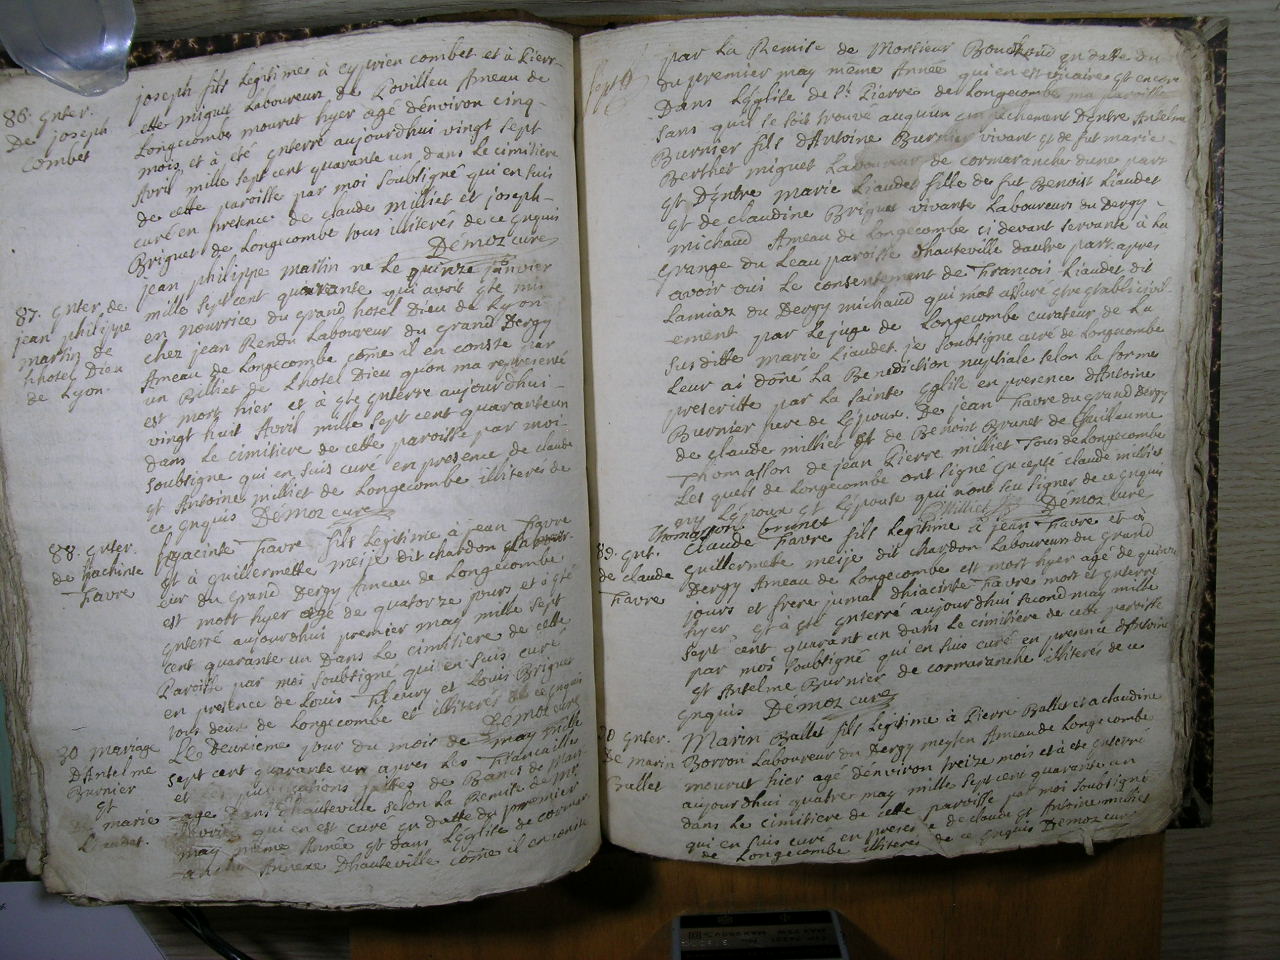 86. Enter.
De joseph
Combet
joseph fils Legitimes à cyprien combet et à Pierr-
ette miguet Laboureurs de Lovilleu Ameau de
Longecombe mourut hyer agé dénviron cinq-
mois et à été Enterré aujourdhui vingt sept
Avril mille sept cent quarante un dans Le cimitiere
de cette paroisse par moi soubsigné qui en suis
curé en presence de claude milliet et joseph-
Briguet de Longecombe tous illiterés de ce Enquis
Démoz curé
87. Enter. de
jean philippe
martin de
lhotel Dieu
de Lyon.
jean philippe martin né Le quinze janvier
mille sept cent quarante qui avoit été mis
en nourrice du grand hotel Dieu de Lyon
chez jean Rendu Laboureur du grand Dergy
Ameau de Longecombe côme il en conste par
un Billiet de Lhotel Dieu quon ma representé
est mort hier et à été Enterré aujourdhui-
vingt huit Avril mille sept cent quarante un
dans Le cimitiere de cette paroisse par moi-
soubsigné qui en suis curé en presence de claude
Et Antoine milliet de Longecombe illiterés de
ce Enquis Démoz curé
88. Enter.
de hiacinte
Favre
hyacinte Favre fils Legitime à jean Favre
Et à guillermette meije dit chardon Labour-
eur du grand Dergy Ameau de Longecombe
est mort hyer agé de quatorze jours et à été
Enterré aujourdhui premier may mille sept
cent quarante un Dans Le cimitiere de cette
Paroisse par moi soubsigné qui en suis curé
en presence de Louis Fleury et Louis Briguet
tous deux de Longecombe et illiterés de ce Enquis
Démoz curé
30 mariage
D'Antelme
Burnier
Et
marie
Liaudet.
Le Deuxieme jour du mois de may mille
sept cent quarante un apres Les Fiancailles
et Les publications faittes de Bancs de Mari-
-age Dans Lhauteville selon La Remise de mr
qui en est curé En datte du premier
may même Année Et dans Léglise de cormar
Annexe Dhauteville côme il en conste
par La Remise de Monsieur En datte du
du premier may même Année qui en est vicaire Et encore
Dans Léglise de St. Pierre de Longecombe ma paroisse
sans quil se soit trouvé aucun empechement Dentre Antelme
Burnier fils d'Antoine Burnier vivant Et de fut marie-
Berthet miguet Laboureur de cormaranche dune part
Et Dentre marie Liaudet fille de fut Benoist Liaudet
Et de claudine Briguet vivante Laboureurs du Dergy-
michaud Ameau de Longecombe ci devant servante à La
grange du Leau paroisse dhauteville dautre part. apres
avoir oui Le consentement de Francois Liaudet dit
Lamiaz du Dergy michaud qui mat assuré être établi civil-
-ement par Le juge de Longecombe curateur de La
susditte marie Liaudet. je soubsigné curé de Longecombe
Leur ai doñé La Benediction nuptiale selon La forme
prescritte par La sainte Eglise en presence d'Antoine
Burnier pere de Lépoux. De jean Favre du grand Dergy
de claude milliet Et de Benoist Brunet de Guillaume
Thomasson de jean Pierre milliet Tous de Longecombe
Les quels de Longecombe ont signé Excepté claude milliet
Lépoux et Lépouse qui n'ont sçu signer de ce Enquis
Thomasson Brunet Milliet Démoz curé
89. Ent.
de claude
Favre
claude Favre fils Legitime à jean Favre et à
guillermette meije dit chardon Laboureurs du grand
Dergy Ameau de Longecombe est mort hyer agé de quinze
jours et frere jumal dhiacinte Favre mort et Enterré
hyer Et à été Enterré aujourdhui second may mille
sept cent quarant un dans Le cimitiere de cette paroisse
par moi soubsigné qui en suis curé en presence d'Antoine
Et Antelme Burnier de cormaranche illiterés de ce
Enquis Démoz curé
90 Enter.
De marin
Ballet
Marin Ballet fils Légitime à Pierre Ballet et a claudine
Borron Laboureur du Dergy meysen Ameau de Longecombe
mourut hier agé dénviron treize mois et à été Enterré
aujourdhui quatre may mille sept cent quarante un
dans Le cimitiere de cette paroisse par moi soubsigné
qui en suis curé en presence de claude Et Antoine miliet
de Longecombe illiterés de ce Enquis Démoz curé